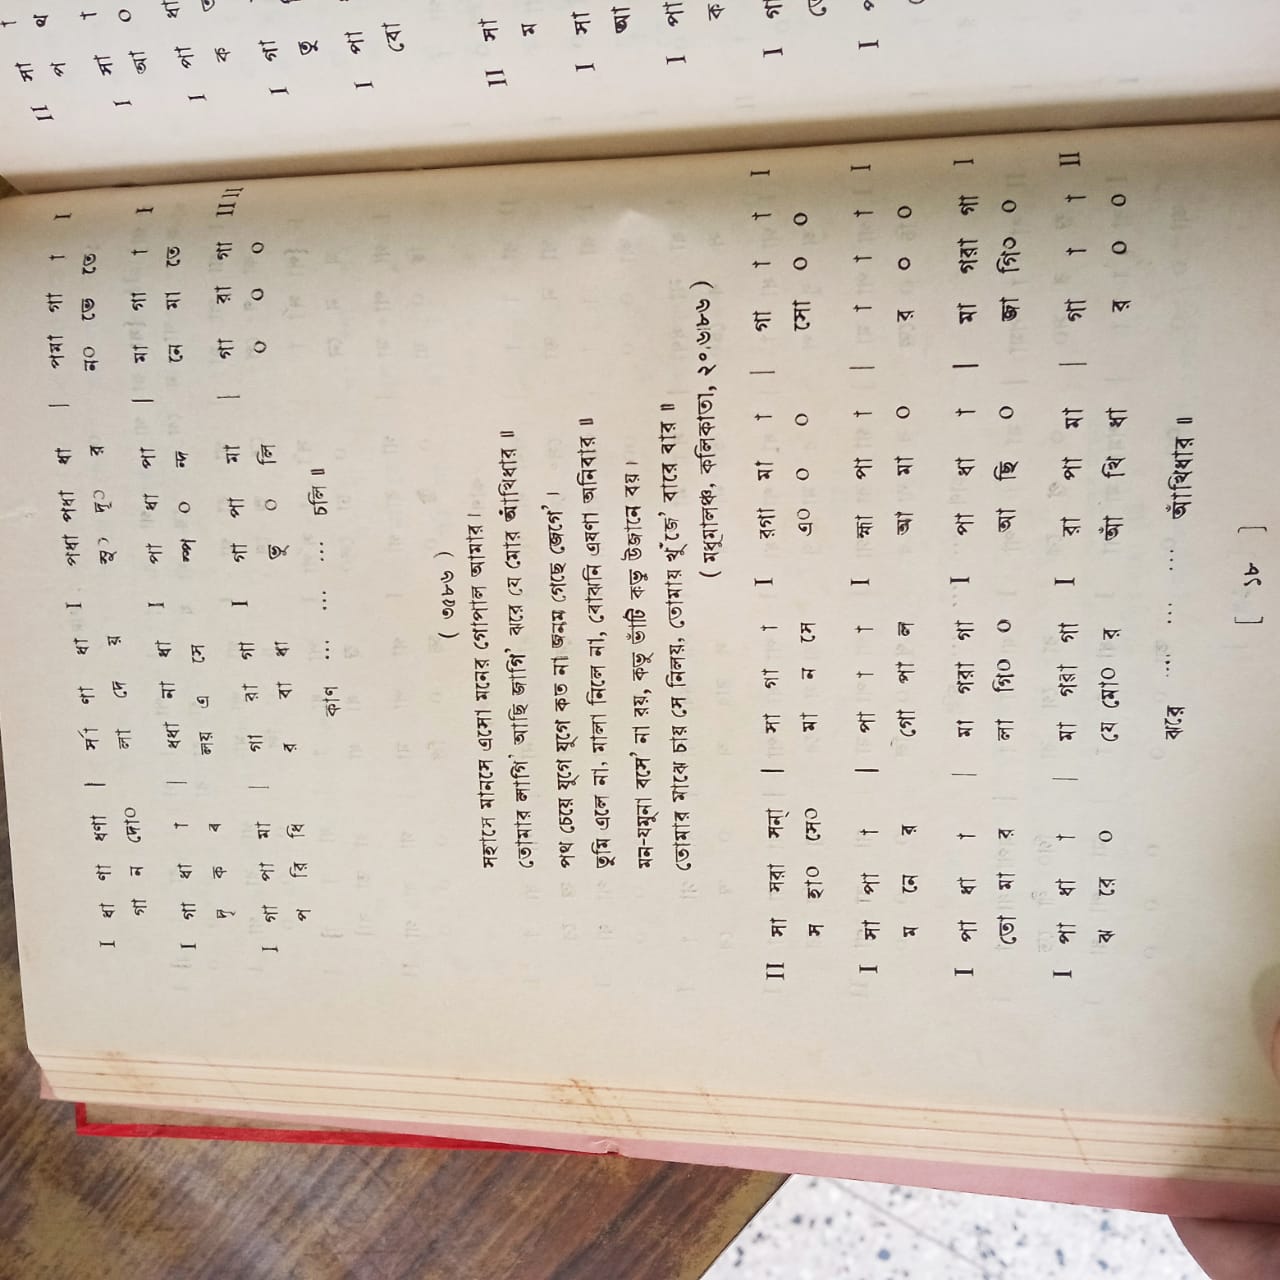 I ধা ণা ধণা | র্সা ণা ধা I পধা পধা ধা | পমা গা া I
গা ন দো০ লা দে য় সু০ দূ০ র ন০ ভে তে
I গা ধা া | ধধা না ধা I পা ধা পা | মা গা া I
দৃ ক ব লয় এ সে স্প ০ ন্দ নে মা তে
I গা পা মা | গা রা গা I গা পা মা | গা রা গা II II
প রি ধি র বা ধা ভু ০ লি ০ ০ ০
কাণ ... ... ... চলি ॥
( ৩৫৮৬ )
সহাসে মানসে এসো মনের গোপাল আমার ।
তোমার লাগি' আছি জাগি' ঝরে যে মোর আঁখিধার ॥
পথ চেয়ে যুগে যুগে কত না জনম গেছে জেগে' ।
তুমি এলে না, মালা নিলে না, বোঝনি এষণা অনিবার ॥
মন-যমুনা বসে' না রয়, কভু ভাঁটি কভু উজানে বয় ।
তোমার মাঝে চায় সে নিলয়, তোমায় খুঁজে' বারে বার ॥
( মধুমালঞ্চ, কলিকাতা, ২০.৬.৮৬ )
II সা সরা সন্া | সা গা া I রগা মা া | গা া া I
স হা০ সে০ মা ন সে এ০ ০ ০ সো ০ ০
I সা পা া | পা া া I হ্মা পা া | া া া I
ম নে র গো পা ল আ মা ০ র ০ ০
I পা ধা া | মা গরা গা I পা ধা া | মা গরা গা I
তো মা র লা গি০ ০ আ ছি ০ জা গি০ ০
I পা ধা া | মা গরা গা I রা পা মা | গা া া II
ঝ রে ০ যে মো০ র আঁ খি ধা র ০ ০
ঝরে .... ... .... আঁখিধার ॥
[ ১৮ ]